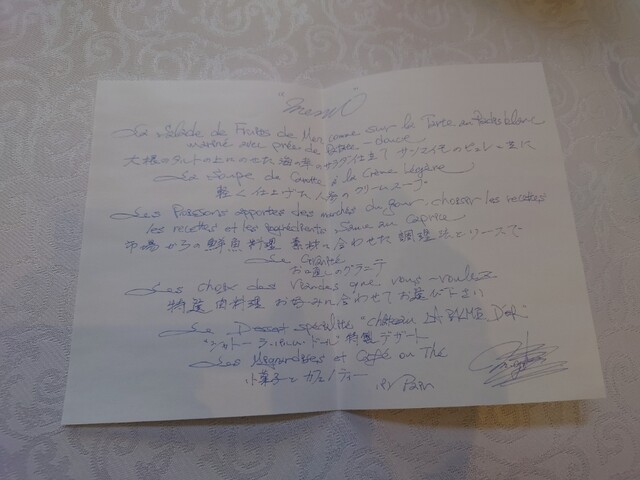 "Menu"
La Salade de Fruites de Mer comme sur la Tarte au Radis blanc
mariné avec purée de Patate-douce
大根のタルトの上にのせた海の幸のサラダ仕立て サツマイモのピュレと共に
La Soupe de Carotte à la Crème Légère
軽く仕上げた人参のクリームスープ
Les Poissons apportes des marches du jour, choisir les recettes
les recettes et les ingrédients, Sauce au Caprice
市場からの鮮魚料理 素材に合わせた調理法とソースで
Le Granité
お口直しのグラニテ
Les choix des Viandes que vous voulez
特選肉料理 お好みに合わせてお選び下さい
Le Dessert spécialité "Château LA PALME D'OR"
"シャトー ラ・パルム・ドール" 特製デザート
Les Mignardises et Café ou Thé
小菓子とカフェ/ティー
Pain